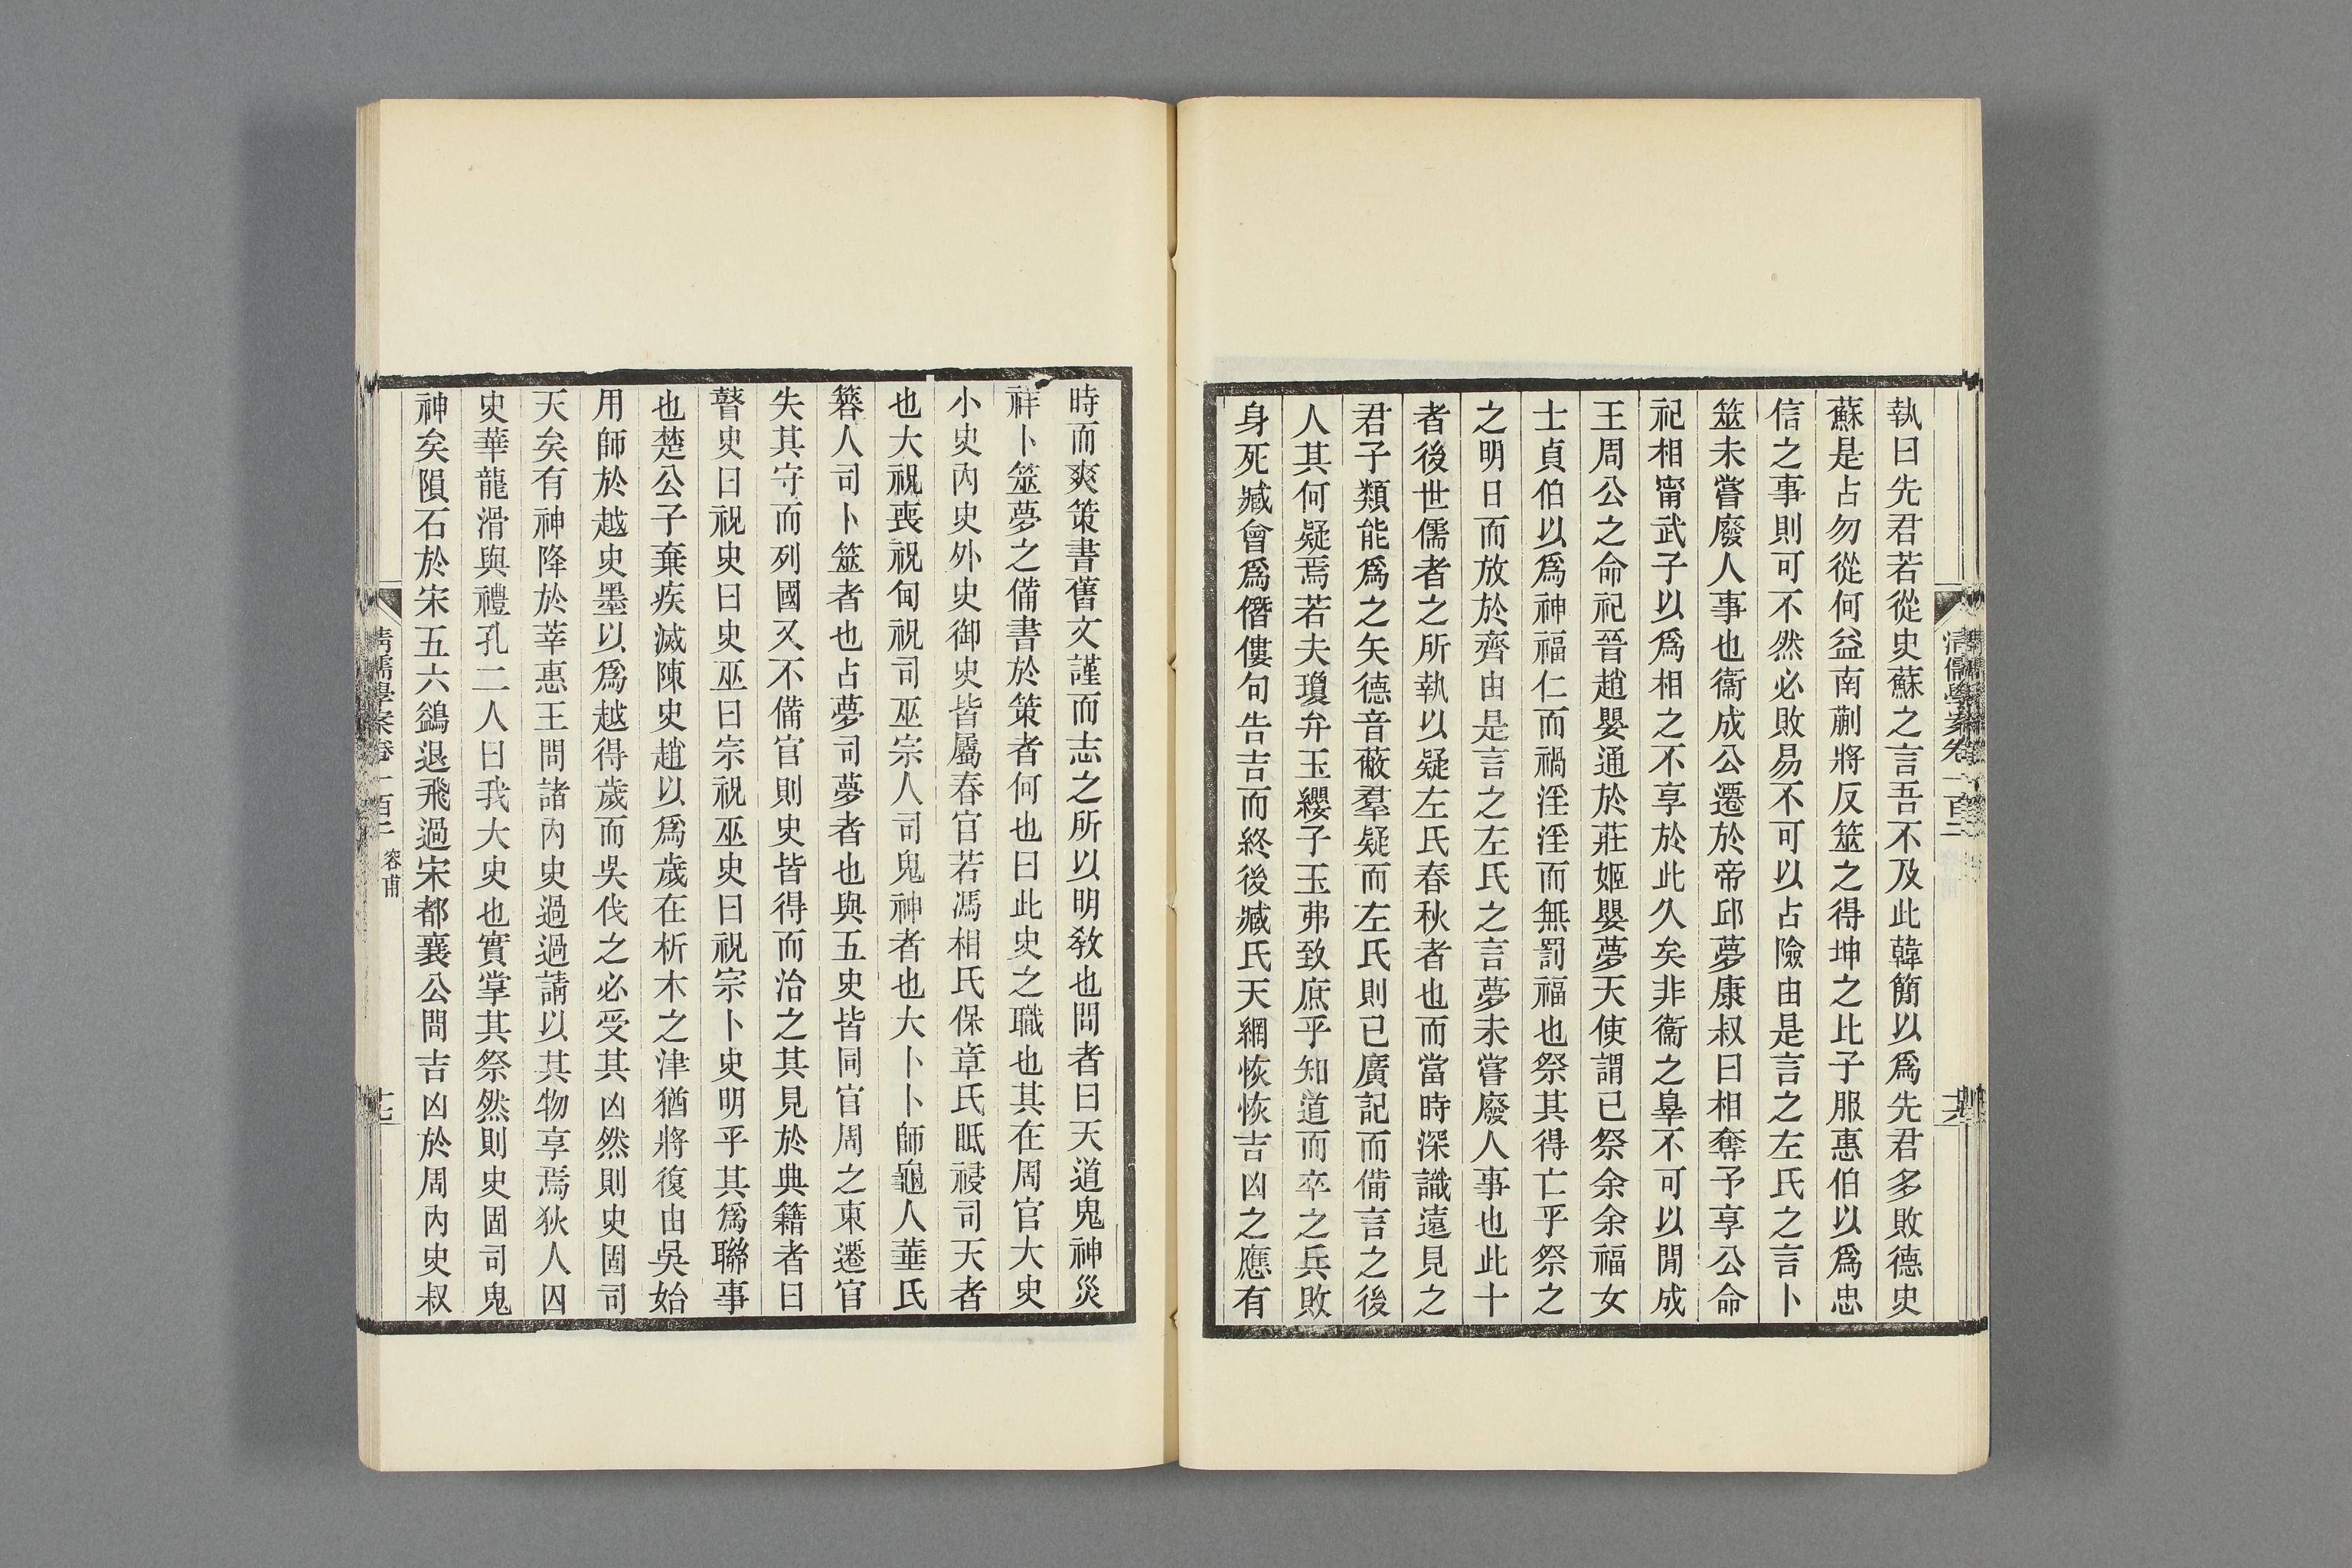 執曰先君若從史蘇之言吾不及此韓簡以爲先君多敗德史
蘇是占勿從何益南蒯將反筮之得坤之比子服惠伯以爲忠
信之事則可不然必敗易不可以占險由是言之左氏之言卜
筮未嘗廢人事也衞成公遷於帝邱夢康叔曰相奪予享公命
祀相甯武子以爲相之不享於此久矣非衞之辠不可以閒成
王周公之命祀晉趙嬰通於莊姬嬰夢天使謂已祭余余福女
士貞伯以爲神福仁而禍淫淫而無罰福也祭其得亡乎祭之
之明日而放於齊由是言之左氏之言夢未嘗廢人事也此十
者後世儒者之所執以疑左氏春秋者也而當時深識遠見之
君子類能爲之矢德音蔽羣疑而左氏則已廣記而備言之後
人其何疑焉若夫瓊弁玉纓子玉弗致庶乎知道而卒之兵敗
身死臧會爲僭僂句告吉而終後臧氏天網恢恢吉凶之應有
清儒學案卷一百二
十六
時而爽策書舊文謹而志之所以明敎也問者曰天道鬼神災
祥卜筮夢之備書於策者何也曰此史之職也其在周官大史
小史內史外史御史皆屬春官若馮相氏保章氏眡祲司天者
也大祝喪祝甸祝司巫宗人司鬼神者也大卜卜師龜人菙氏
簭人司卜筮者也占夢司夢者也與五史皆同官周之東遷官
失其守而列國又不備官則史皆得而治之其見於典籍者曰
瞽史曰祝史曰史巫曰宗祝巫史曰祝宗卜史明乎其爲聯事
也楚公子棄疾滅陳史趙以爲歲在析木之津猶將復由吳始
用師於越史墨以爲越得歲而吳伐之必受其凶然則史固司
天矣有神降於莘惠王問諸內史過過請以其物享焉狄人囚
史華龍滑與禮孔二人曰我大史也實掌其祭然則史固司鬼
神矣隕石於宋五六鷁退飛過宋都襄公問吉凶於周內史叔
清儒學案卷一百二 容甫
十七